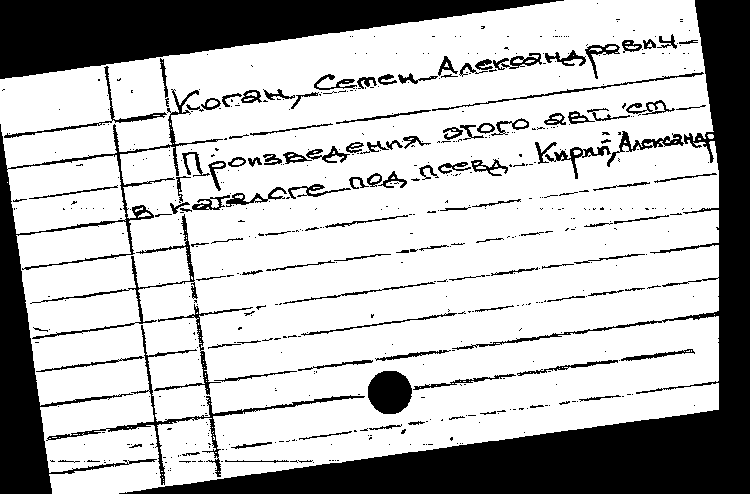 Коган, Семен Александрович
Произведения этого авт. см
в каталоге под псевд. Кирий, Александр